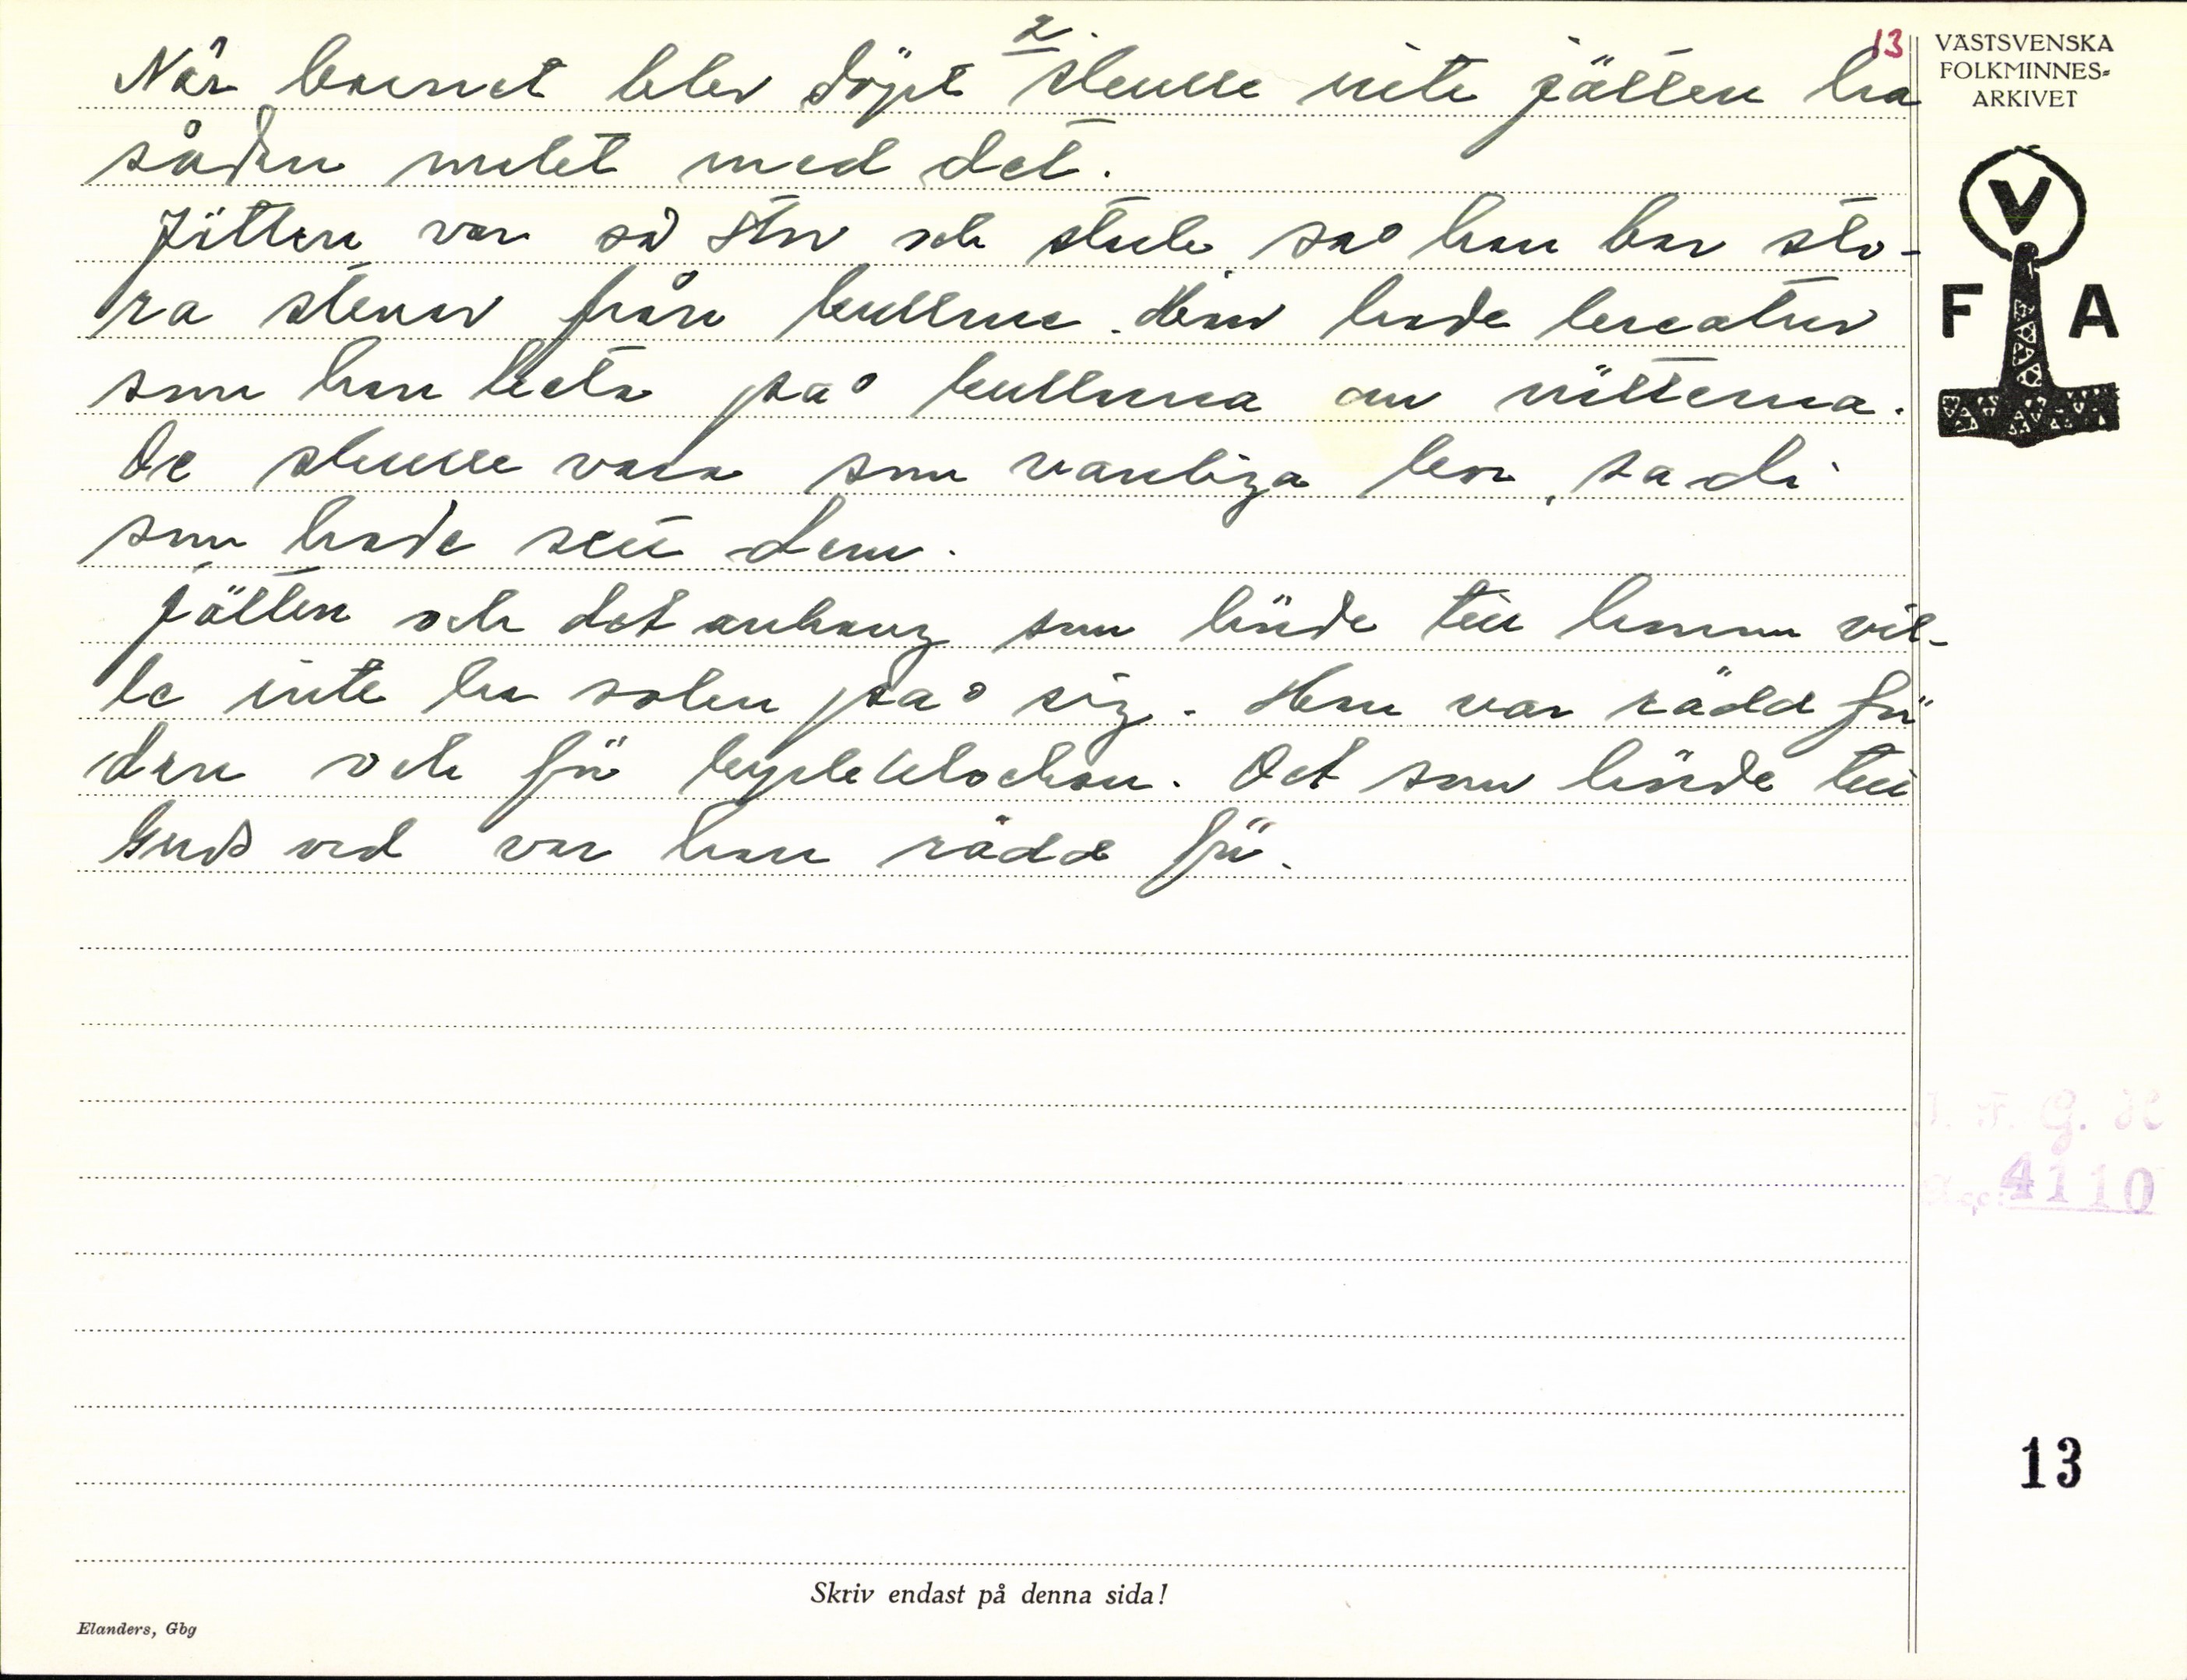 2.
13
När barnet blev döpt skulle inte jätten ha
sådan makt med det.
Jätten var så stor och stark så han bar sto-
ra stenar från kullarna. Han hade kreatur
som han beta på kullarna om nätterna.
De skulle vara som vanliga kor, sa di
som hade sett dem.
Jätten och det anhang som hörde till honom vil-
le inte ha solen på sig. Han var rädd för
den och för kyrkklockan. Det som hörde till
Guds ord var han rädd för.
VÄSTSVENSKA
FOLKMINNES-
ARKIVET
V
F A
I. F. G. H
Acc: 4110
13
Skriv endast på denna sida!
Elanders, Gbg